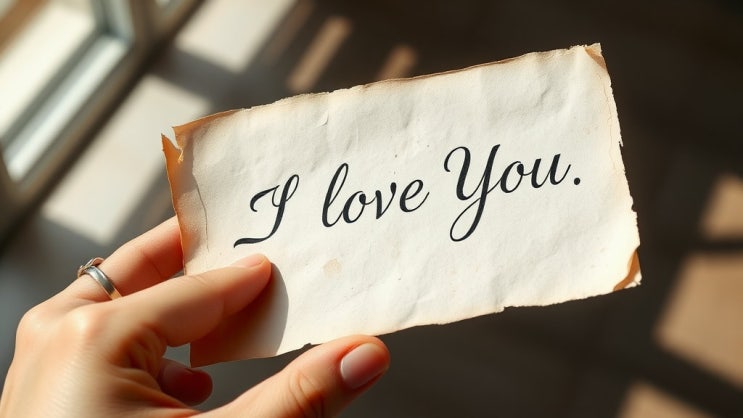 I love You.